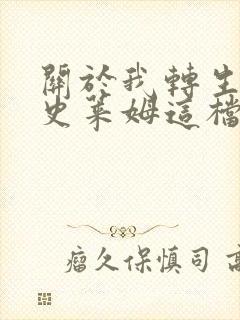 關於我轉生
史萊姆這檔
瘤久保慎司